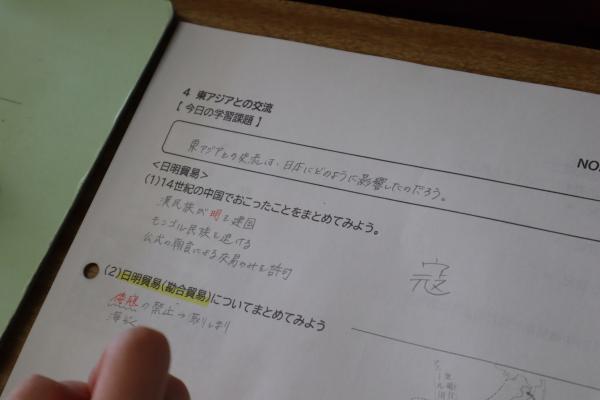 4 東アジアとの交流
【今日の学習課題】
東アジアとの交流は、日本にどのように影響したのだろう。
NO.
<日明貿易>
(1)14世紀の中国でおこったことをまとめてみよう。
漢民族が明を建国
モンゴル民族を退ける
公式の朝貢による交易のみを許可
寇
(2)日明貿易(勘合貿易)についてまとめてみよう
倭寇の禁止→取りしまり
海